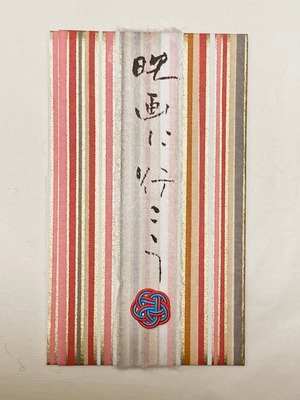 映画に行こう